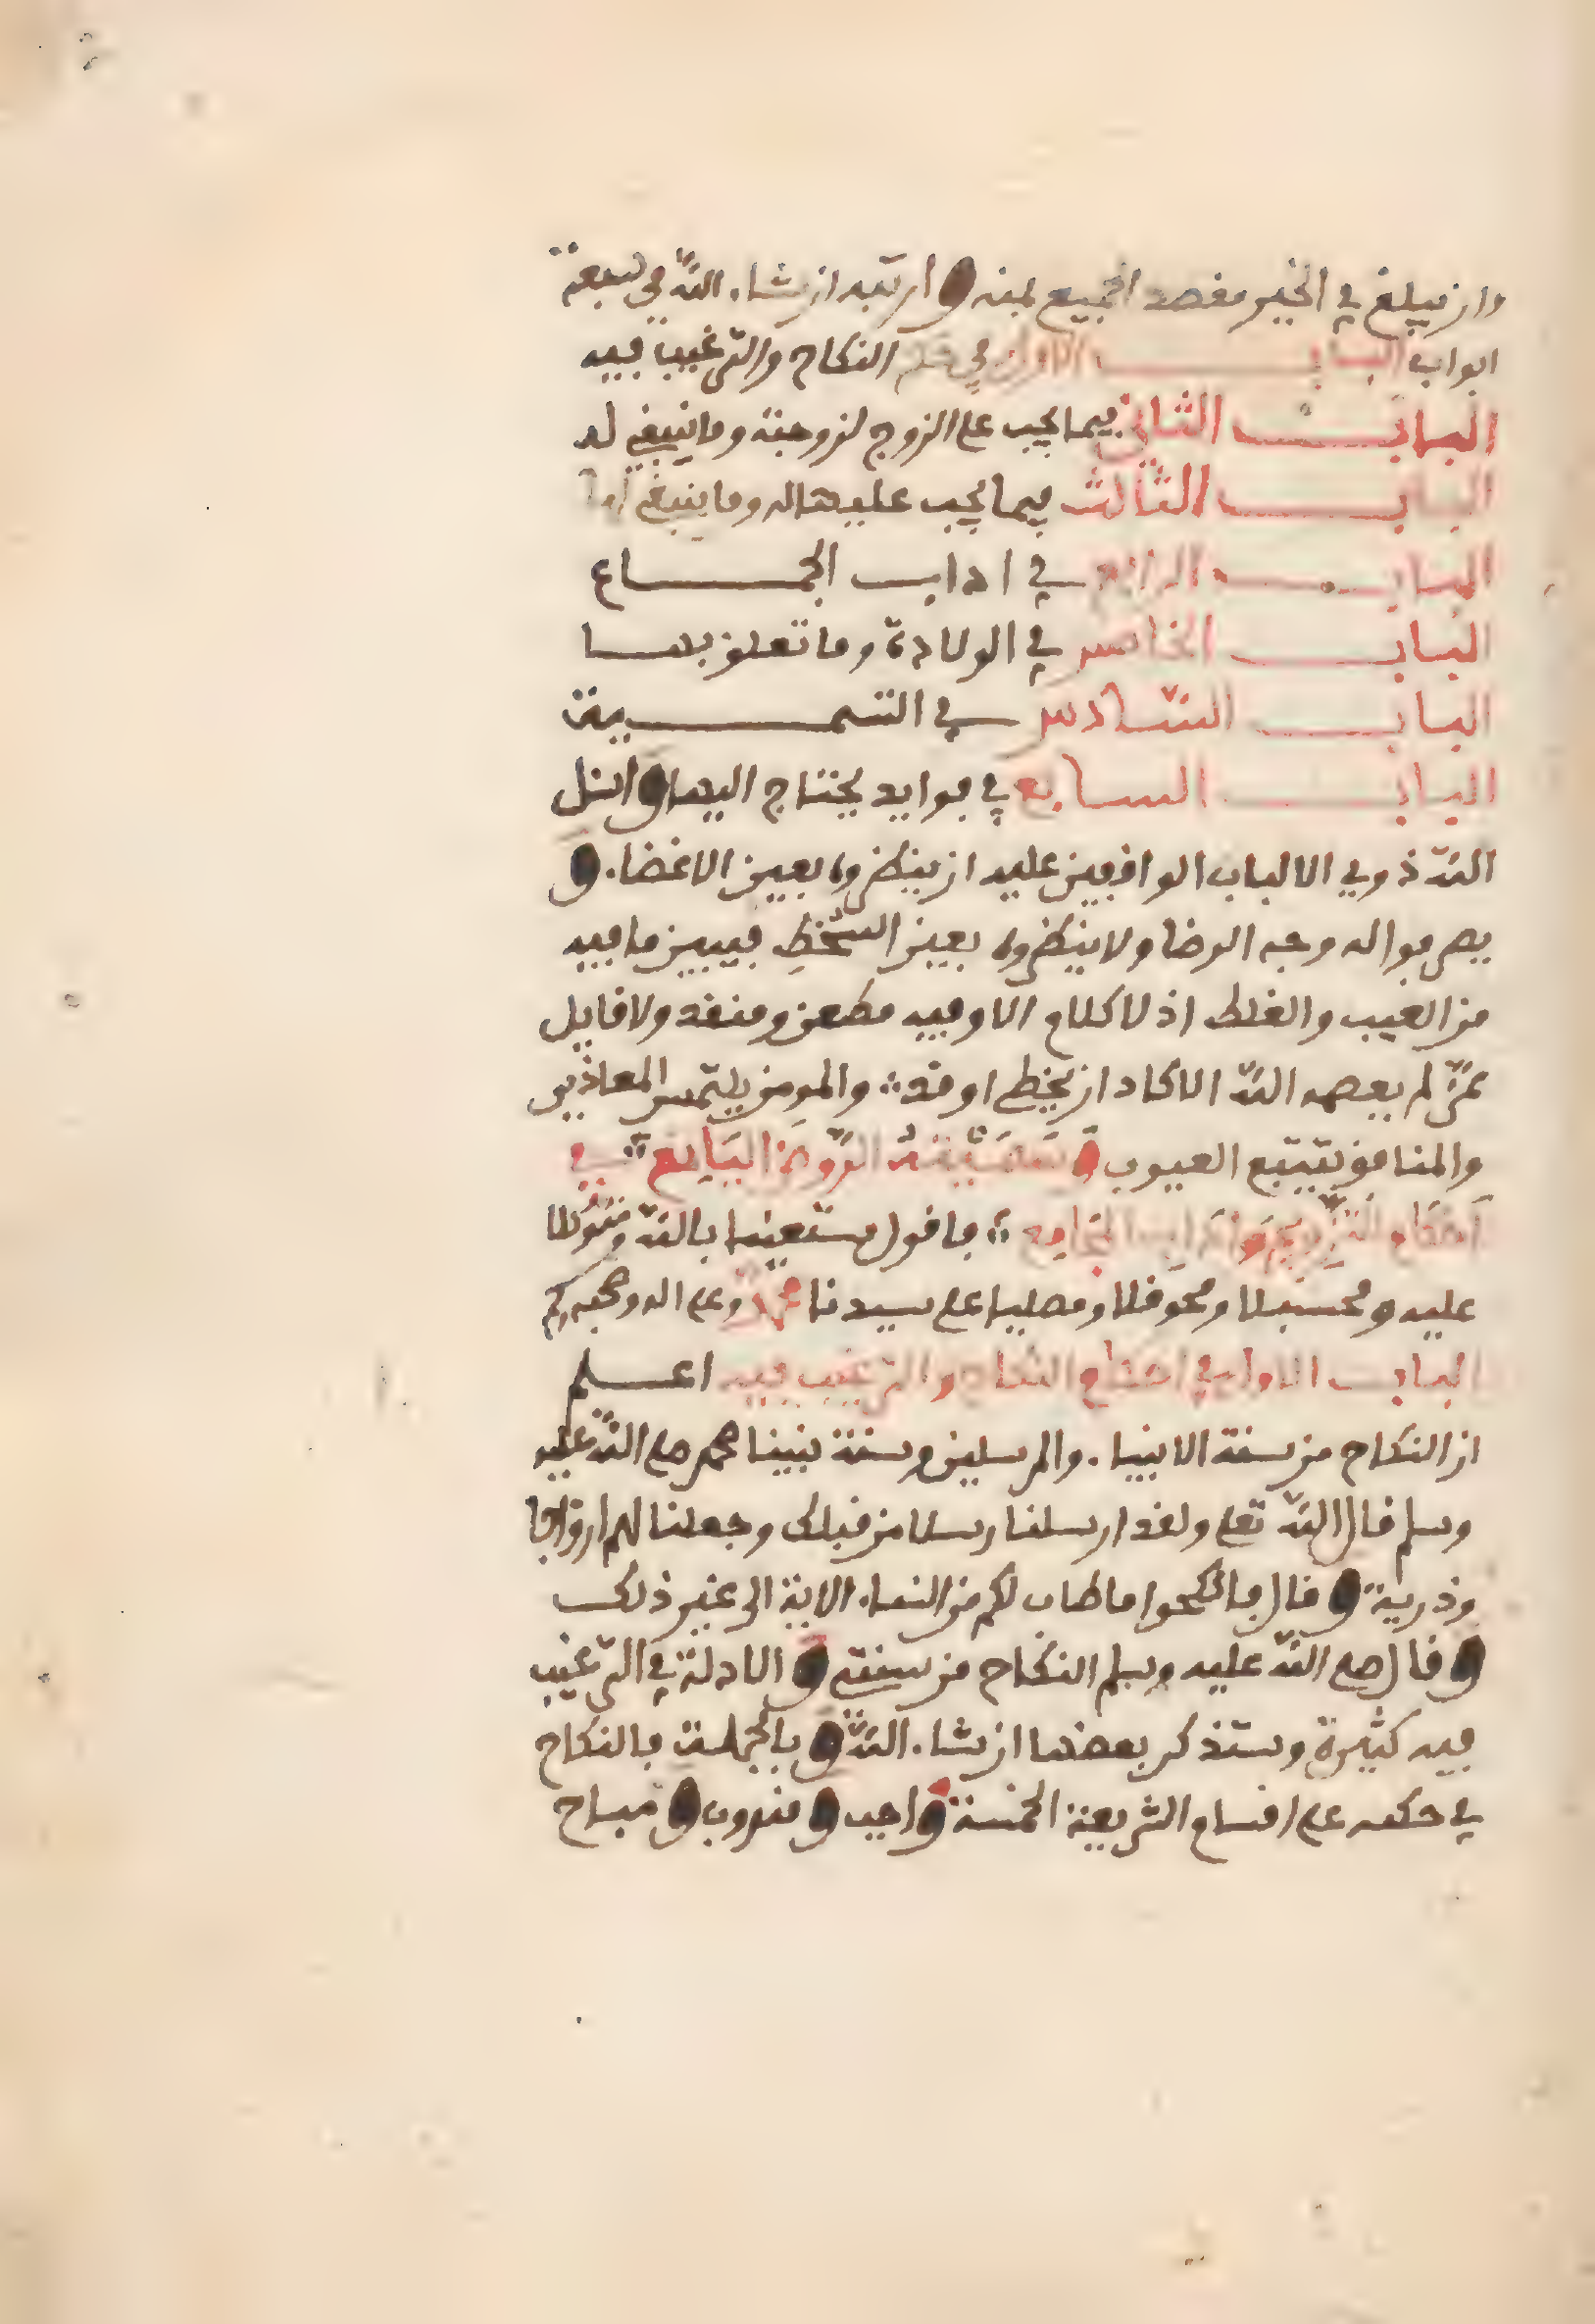 وان يبلغ في الخير مقصد الجميع بمنه وارتبه ان شاء الله في سبعة
ابواب الباب الاول في حكم النكاح والترغيب فيه
الباب الثاني فيما يجب على الزوج لزوجته وما ينبغي له
الباب الثالث فيما يجب عليها له وما ينبغي لها
الباب الرابع في اداب الجماع
الباب الخامس في الولادة وما تعلق بها
الباب السادس في التسمية
الباب السابع في فوايد يحتاج اليها واسئل
الله ذوي الالباب الواقفين عليه ان ينظروه بعين الاغضاء و
يصرفوا له وجه الرضا ولا ينظروه بعين السخط فيبين ما فيه
من العيب والغلط اذ لا كلام الا وفيه مطعن ومنقد ولا قايل
ممن لم يعصمه الله الا كاد ان يخطئ او قد والمومن يلتمس المعاذير
والمنافق يتتبع العيوب وسميته الروض اليانع في
احكام التزويج واداب المجامع فاقول مستعينا بالله ومتوكلا
عليه ومحسبلا ومحوقلا ومصليا على سيدنا محمد وعلى اله وصحبه
الباب الاول في احكام النكاح والترغيب فيه اعلم
ان النكاح من سنة الانبياء والمرسلين وسنة نبينا محمد صلى الله عليه
وسلم قال الله تعلى ولقد ارسلنا رسلا من قبلك وجعلنا لهم ازواجا
وذرية وقال فانكحوا ما طاب لكم من النساء الاية الى غير ذلك
وقال صلى الله عليه وسلم النكاح من سنتي والادلة في الترغيب
فيه كثيرة وستذكر بعضها ان شاء الله وبالجملة فالنكاح
في حكمه على اقسام الشريعة الخمسة واجب ومندوب ومباح